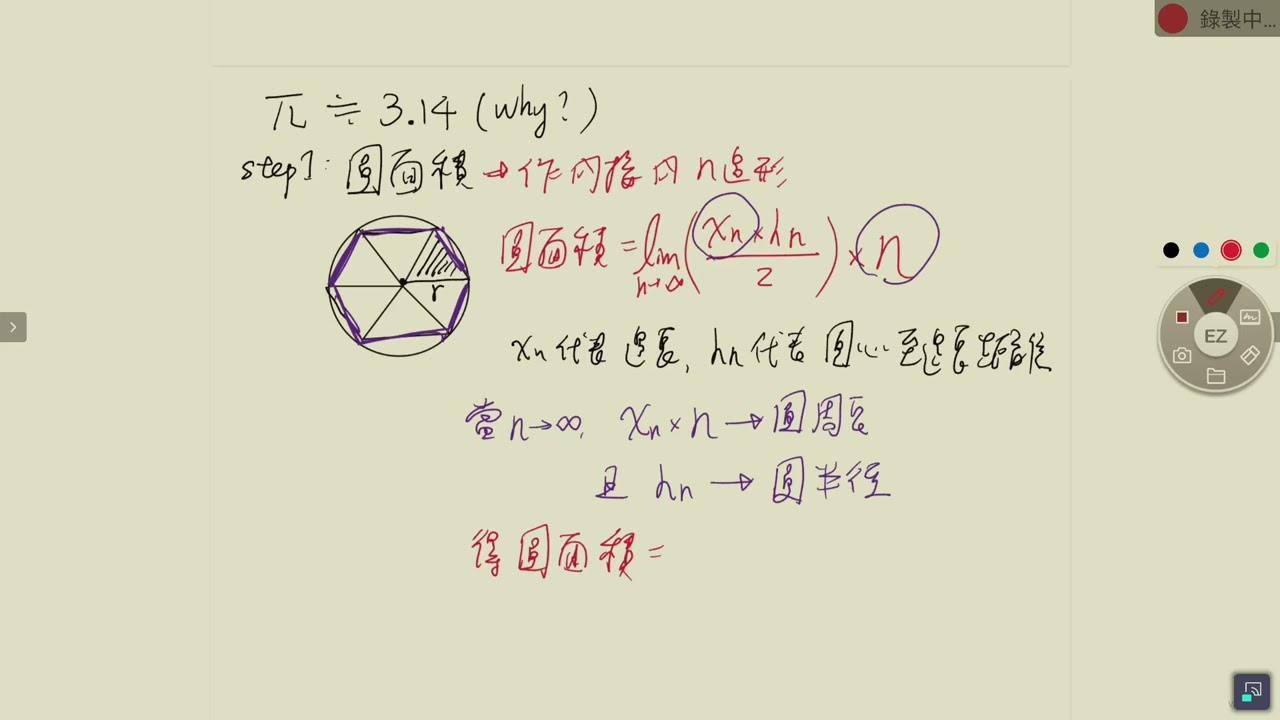 錄製中...
π ≒ 3.14 (why?)
step1: 圓面積 → 作內接內 n 邊形
圓面積 = lim n→∞ (xn × hn / 2) × n
r
xn 代表 邊長, hn 代表 圓心至邊長
當 n→∞, xn × n → 圓周長
且 hn → 圓半徑
得圓面積 =
EZ